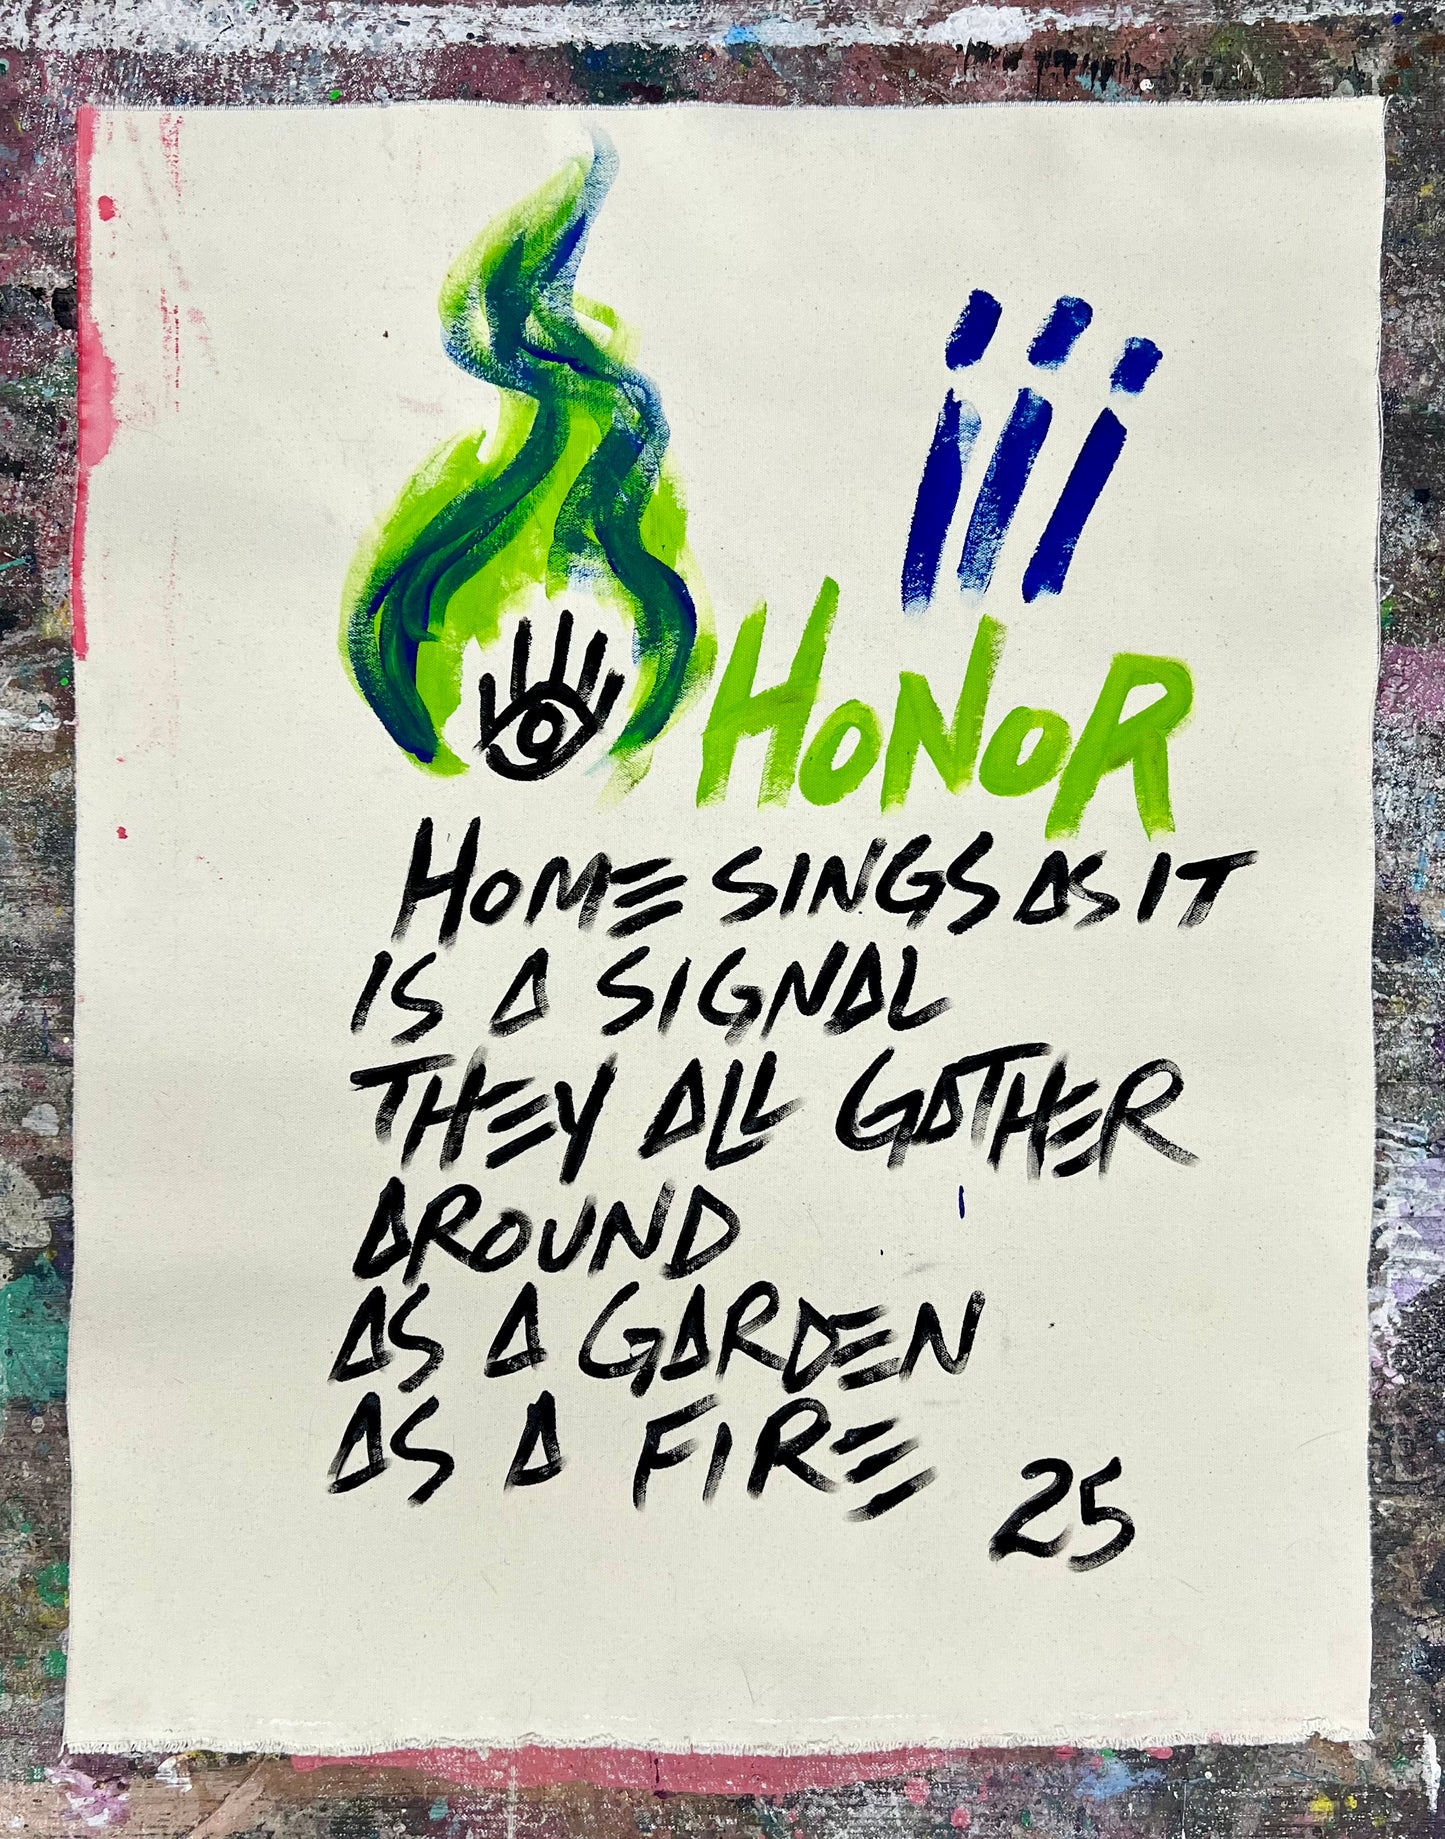 iii
HONOR
HOME SINGS AS IT
IS A SIGNAL
THEY ALL GATHER
AROUND
AS A GARDEN
AS A FIRE
25